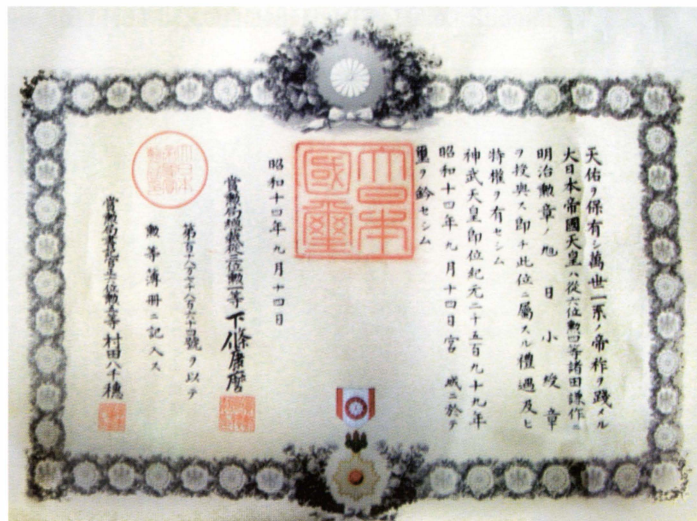 天佑ヲ保有シ萬世一系ノ帝祚ヲ踐メル
大日本帝國天皇ハ從六位勲四等諸田謙作ニ
明治勲章ノ旭日小綬章
ヲ授與ス即チ此位ニ屬スル禮遇及ヒ
特權ヲ有セシム
神武天皇即位紀元二千五百九十九年
昭和十四年九月十四日宮城ニ於テ
璽ヲ鈐セシム
大日本
國璽
昭和十四年九月十四日
賞勲局總裁從三位勲一等下條康麿
第百十八万七千八百六十四號ヲ以テ
勲等簿册ニ記入ス
賞勲局書記官正五位勲五等村田八千穂